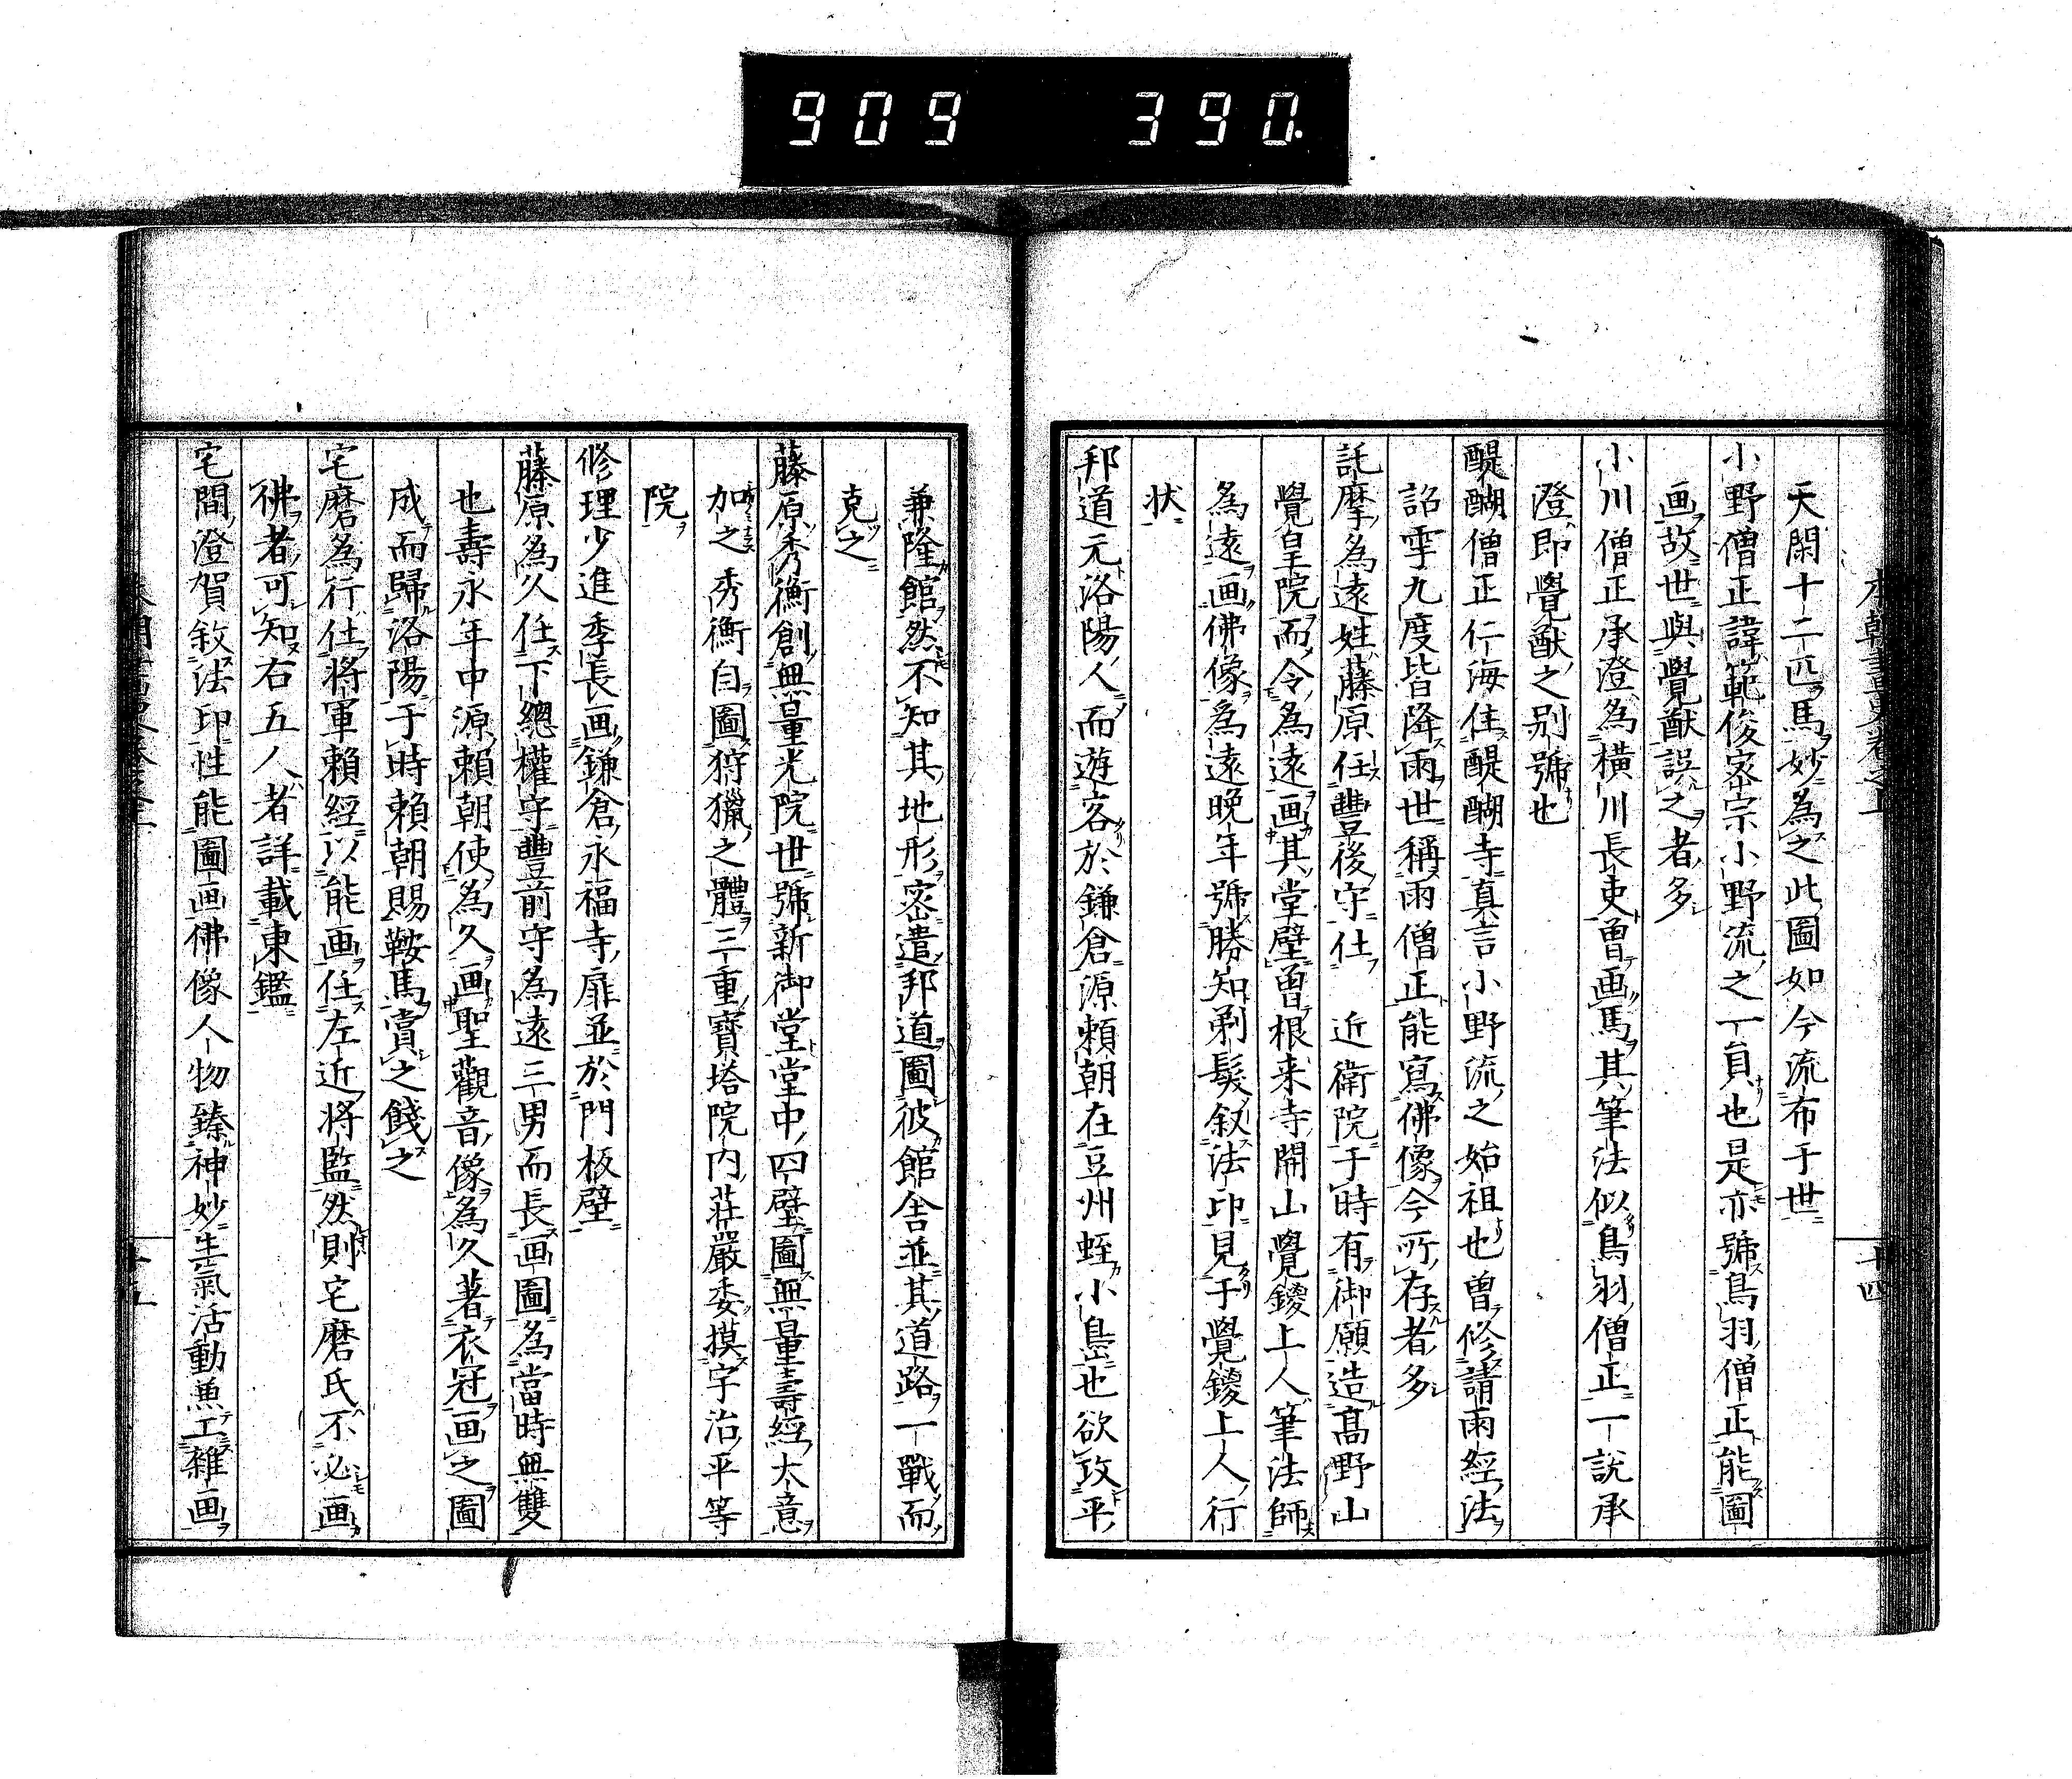 909 390
本朝畫史卷之上
十四
天閑十二匹馬妙為之此圖如今流布于世
小野僧正諱範俊密宗小野流之一員也是亦號鳥羽僧正能圖
画故世與覺猷誤之者多
小川僧正承澄為橫川長吏曽画馬其筆法似鳥羽僧正一說承
澄即覺猷之别號也
醍醐僧正仁海住醍醐寺真言小野流之始祖也曽修請雨經法
詔雩九度皆降雨世稱雨僧正能寫佛像今所存者多
託摩為遠姓藤原任豐後守仕 近衛院于時有御願造髙野山
覺皇院而令為遠画其堂壁曽根来寺開山覺鑁上人筆法師
為遠画佛像為遠晚年號勝知剃髮叙法印見于覺鑁上人行
状
邦道元洛陽人而遊客於鎌倉源頼朝在豆州蛭小島也欲攻平
兼隆館然不知其地形密遣邦道圖彼館舎並其道路一戰而
克之
藤原秀衡創無量光院世號新御堂堂中四壁圖無量壽經大意
加之秀衡自圖狩獵之體三重寶塔院内荘嚴委摸宇治平等
院
修理少進季長画鎌倉永福寺扉並於門板壁
藤原為久任下總權守豐前守為遠三男而長画圖為當時無雙
也壽永年中源頼朝使為久画聖觀音像為久著衣冠画之圖
成而歸洛陽于時頼朝賜鞍馬賞之餞之
宅磨為行仕将軍頼經以能画任左近将監然則宅磨氏不必画
佛者可知右五人者詳載東鑑
宅間澄賀敘法印性能圖画佛像人物臻神妙生氣活動兼工雜画